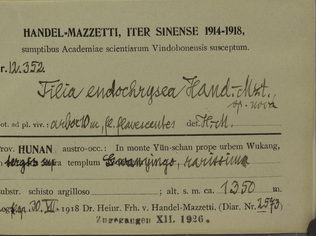 HANDEL-MAZZETTI, ITER SINENSE 1914-1918,
sumptibus Academiae scientiarum Vindobonensis susceptum.
Nr. 12.352.
Tilia endochrysea Hand.-Mzt.
sp. nova
Not. ad pl. viv.: arbor 10 m, fl. flavescentes det. H-M.
Prov. HUNAN austro-occ.: In monte Yün-schan prope urbem Wukang,
templum rarissima
substr. schisto argilloso ; alt. s. m. ca. 1350 m.
30. VII. 1918 Dr. Heinr. Frh. v. Handel-Mazzetti. (Diar. Nr. 2573)
Zugegangen XII. 1926.